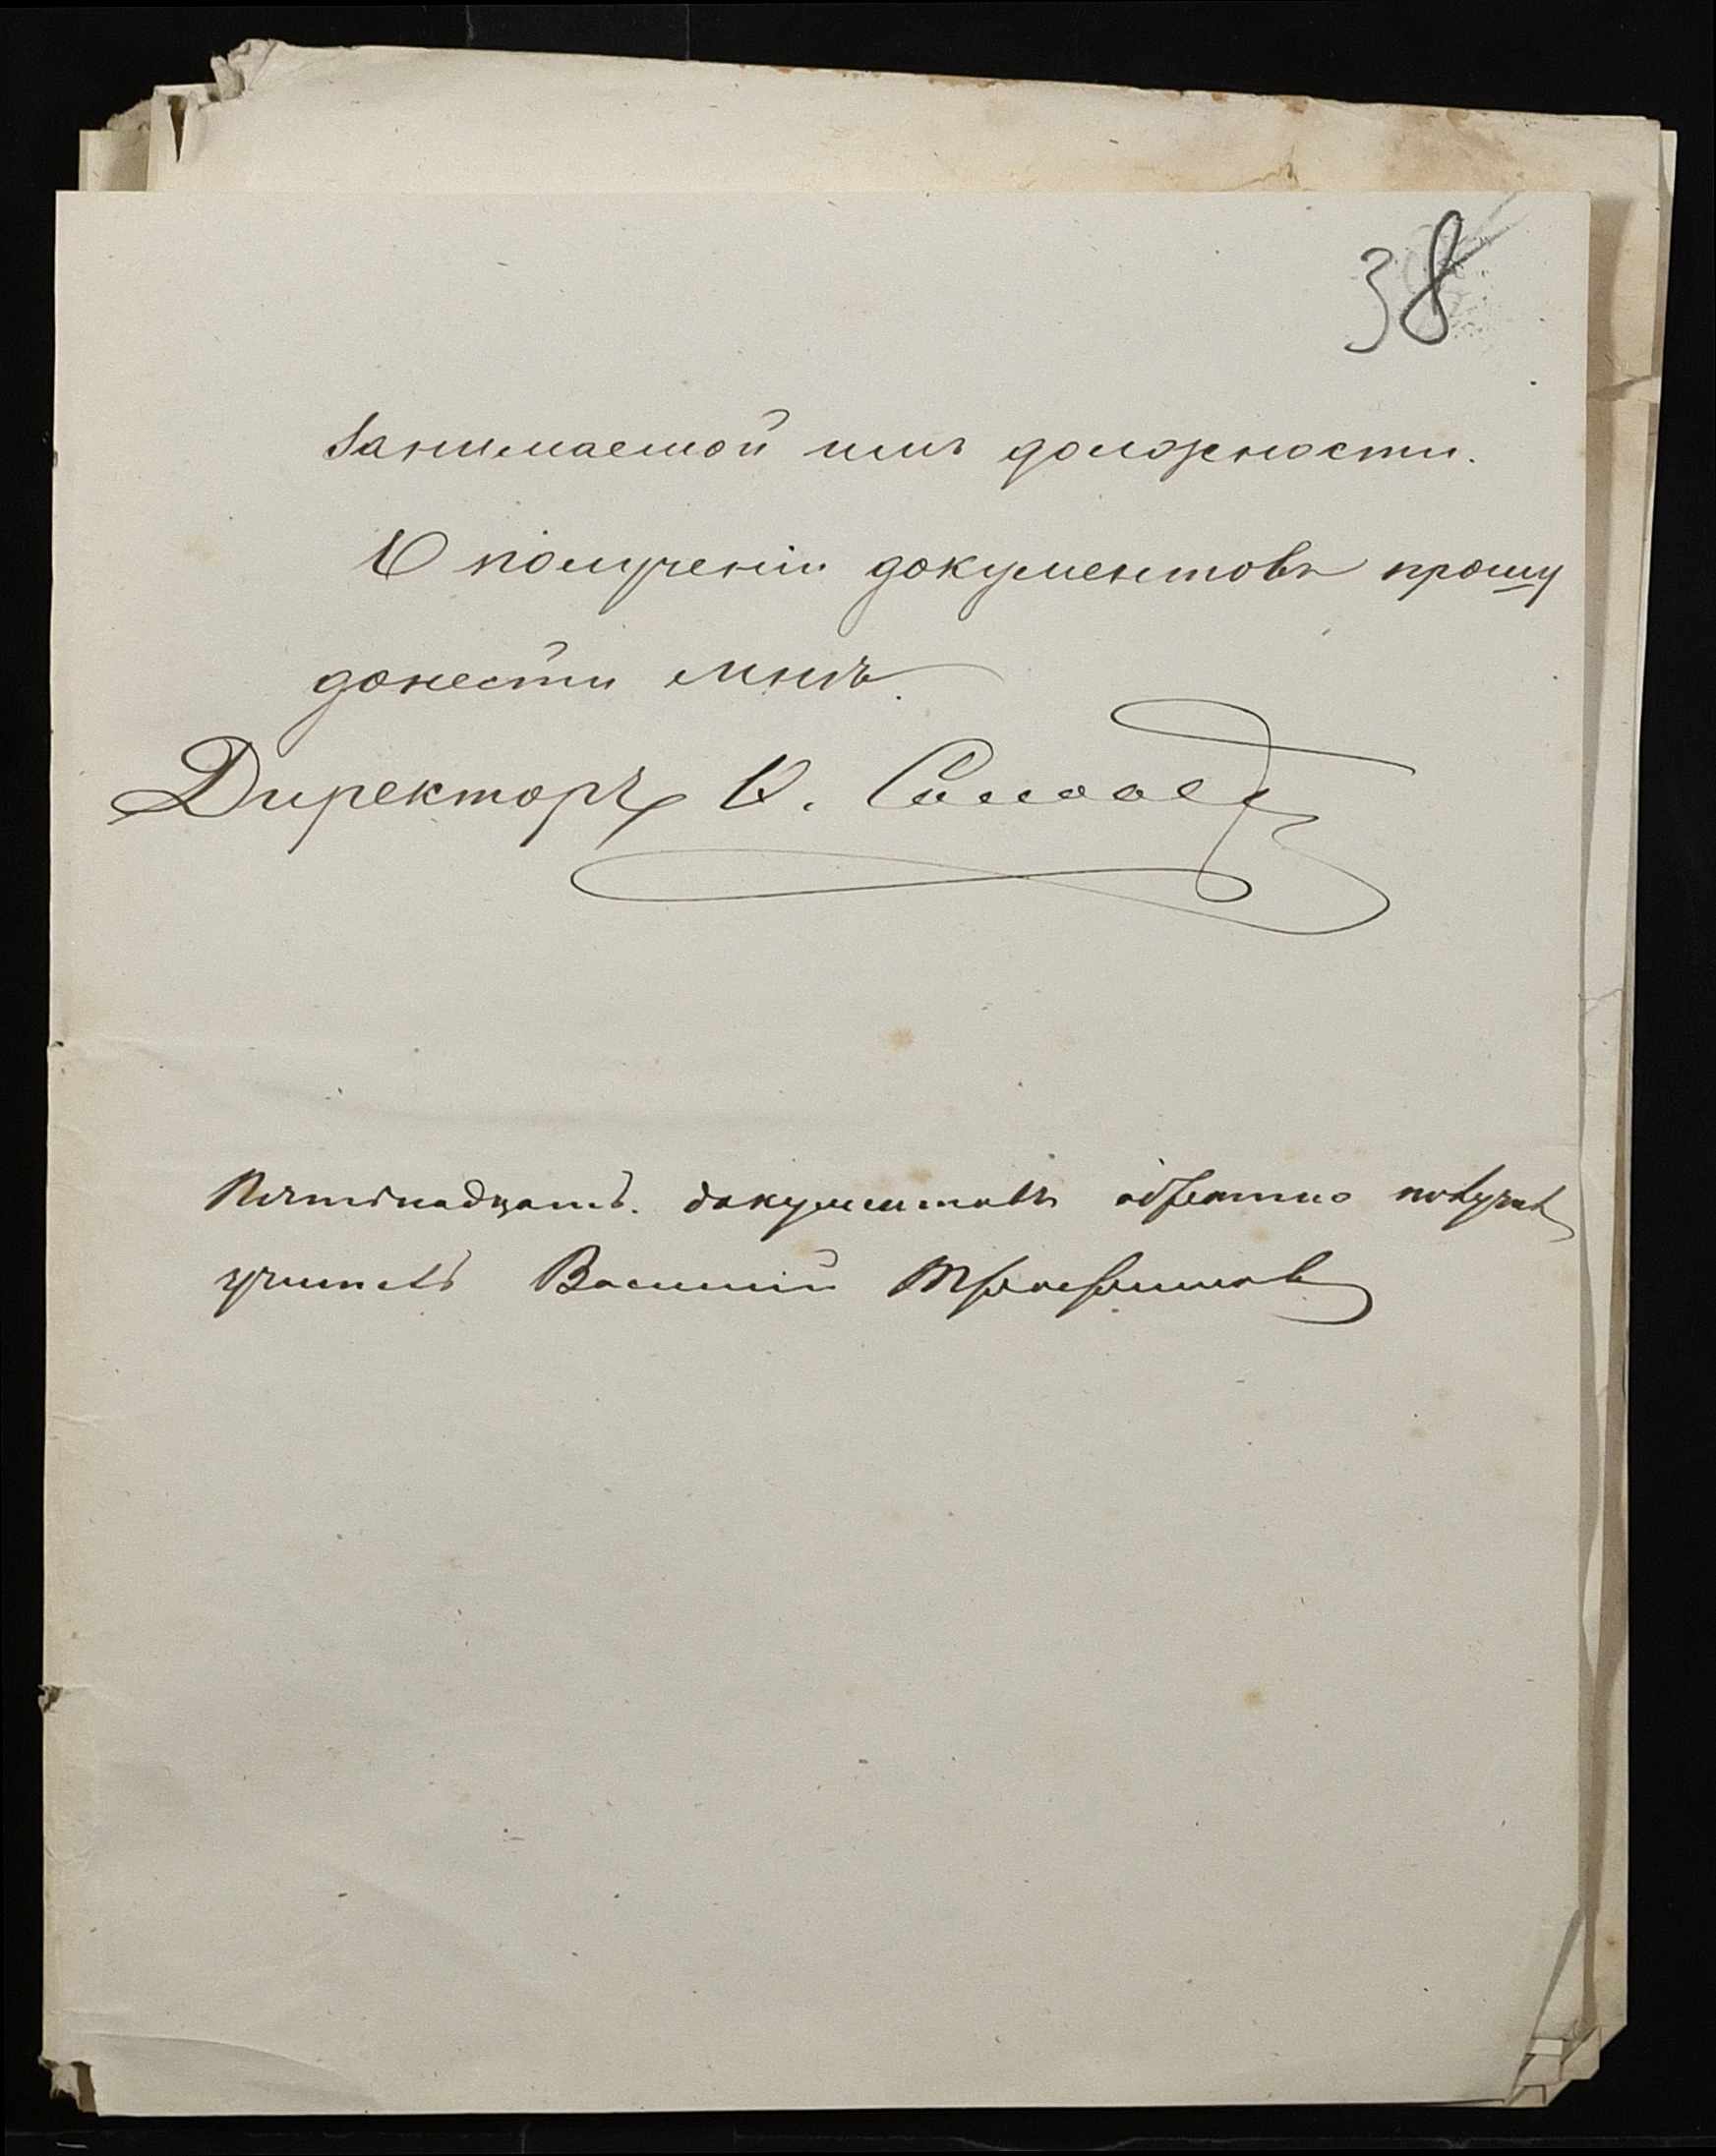 38
занимаемой имъ должности.
О полученіи документовъ прошу
донести мнѣ.
Директоръ
Пятнадцать документовъ обратно получилъ
учитель Василій